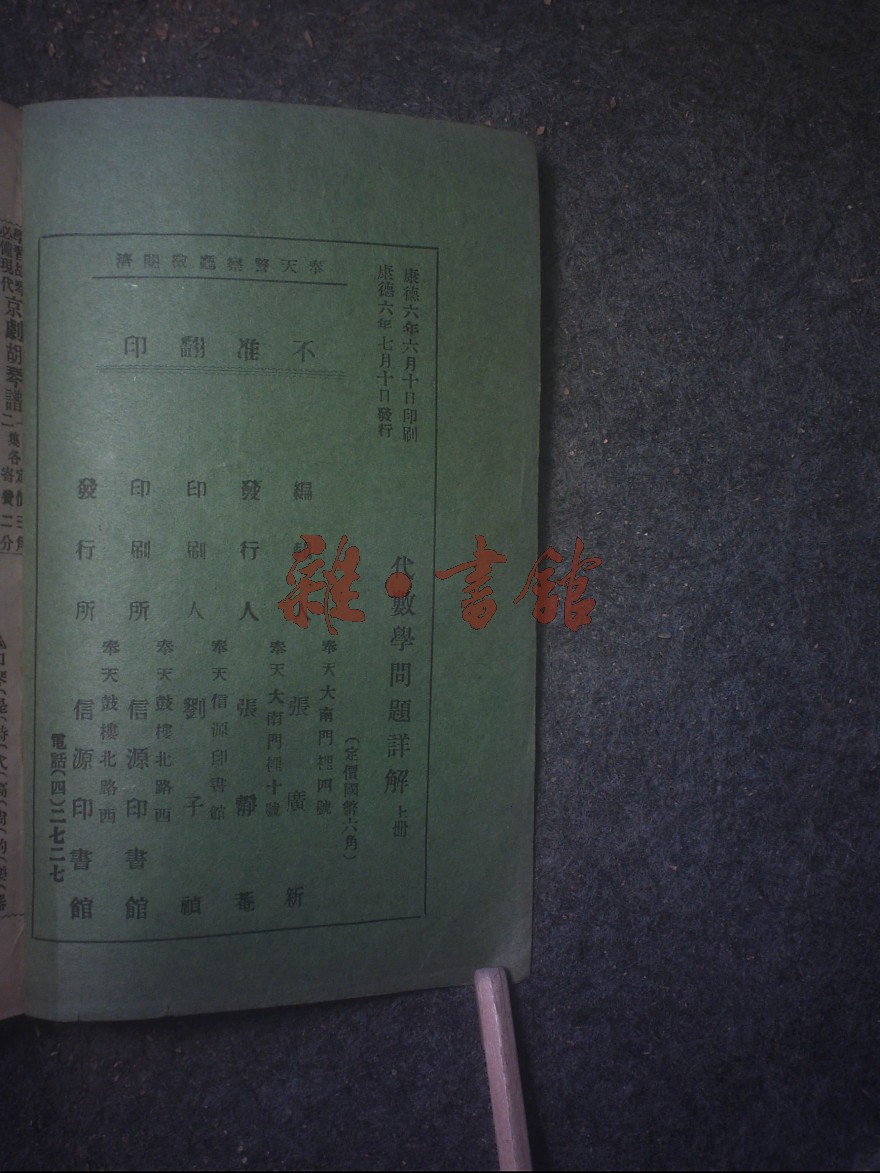 康德六年六月十日印刷
康德六年七月十日發行
代數學問題詳解 上册
(定價國幣六角)
奉天警察廳檢閱濟
不准翻印
編
奉天大南門裡四號
張廣新
發行人
奉天大南門裡十號
張靜菴
印刷人
奉天信源印書館
劉子禎
印刷所
奉天鼓樓北路西
信源印書館
發行所
奉天鼓樓北路西
信源印書館
電話(四)二七二七
雜·書館
必備現代
京劇胡琴譜
二集各
寄費二分